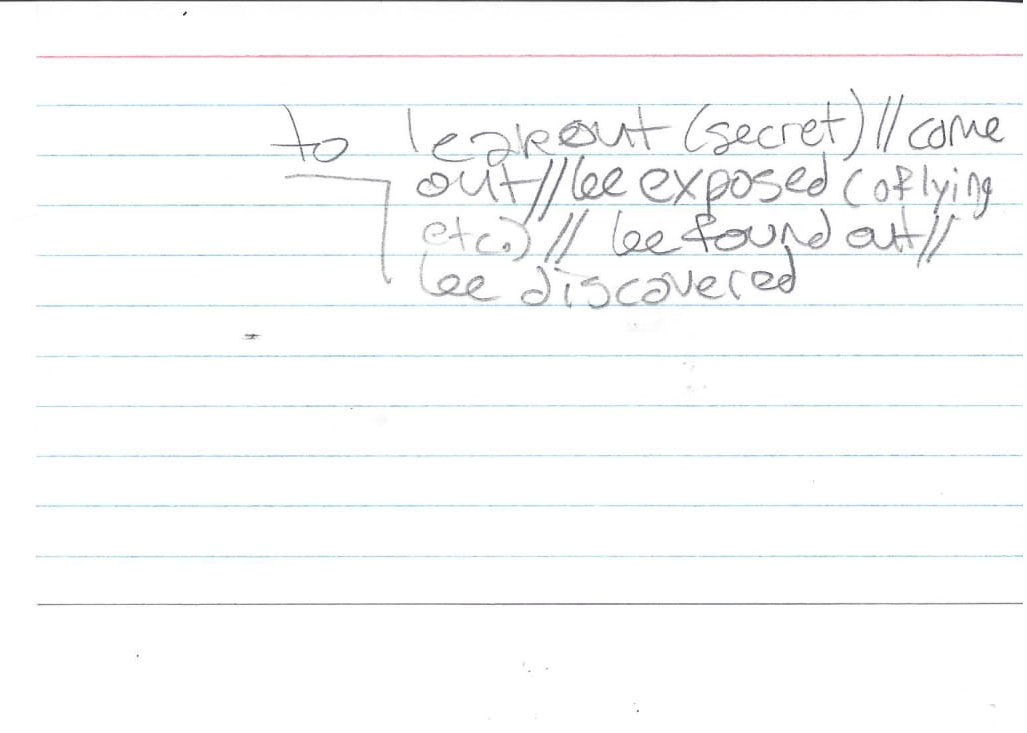 to leak out (secret) // come
out // be exposed (of lying
etc.) // be found out //
be discovered